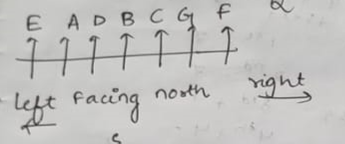 E A D B C G F
left facing north right